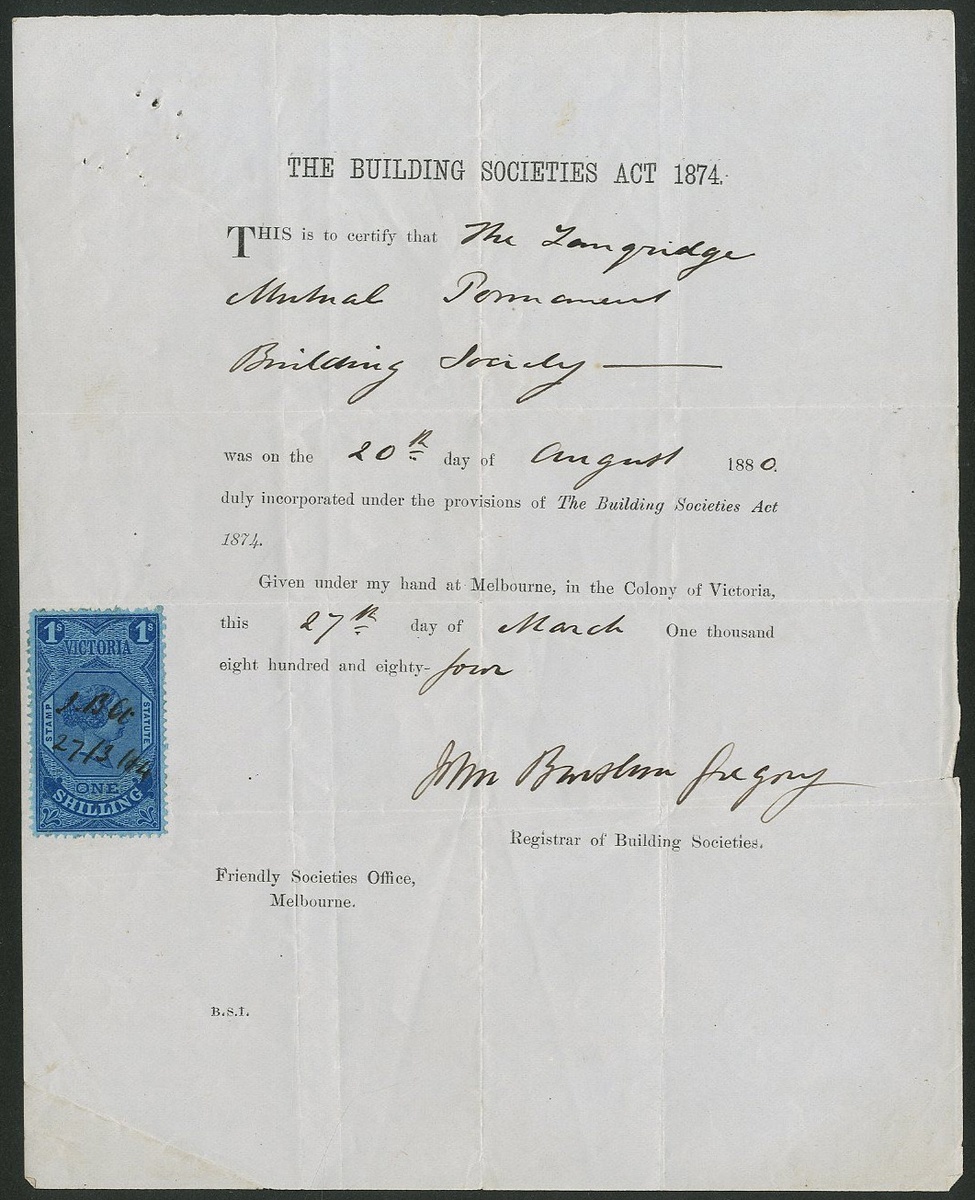 THE BUILDING SOCIETIES ACT 1874.
THIS is to certify that The Langridge
Mutual Permanent
Building Society
was on the 20th day of August 1880.
duly incorporated under the provisions of The Building Societies Act
1874.
Given under my hand at Melbourne, in the Colony of Victoria,
this 27th day of March One thousand
eight hundred and eighty-four
1s 1s
VICTORIA
STAMP STATUTE
27/3/84
ONE
SHILLING
John Burslem Gregory
Registrar of Building Societies.
Friendly Societies Office,
Melbourne.
B.S.I.